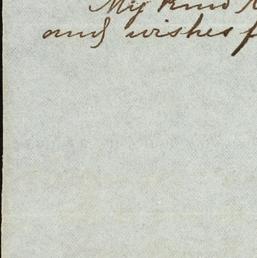 My kind
and wishes f